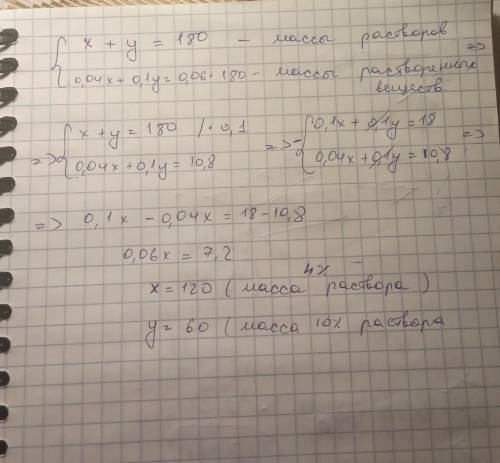 x + y = 180 – массы растворов
0,04x + 0,1y = 0,06 · 180 – массы растворенных веществ =>
=> x + y = 180 / · 0,1 => 0,1x + 0,1y = 18
0,04x + 0,1y = 10,8 0,04x + 0,1y = 10,8 =>
=> 0,1x - 0,04x = 18 - 10,8
0,06x = 7,2
x = 120 (масса 4% раствора)
y = 60 (масса 10% раствора